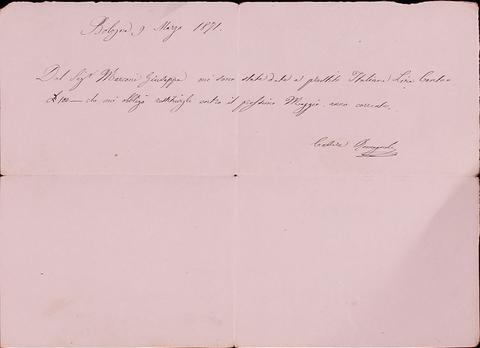 Bologna 9 Marzo 1871.
Dal Sigr Marconi Giuseppe mi sono state date a prestito Italiane Lire Cento
£ 100 — che mi obbligo restituirgli entro il prossimo Maggio anno corrente.
Romagnoli